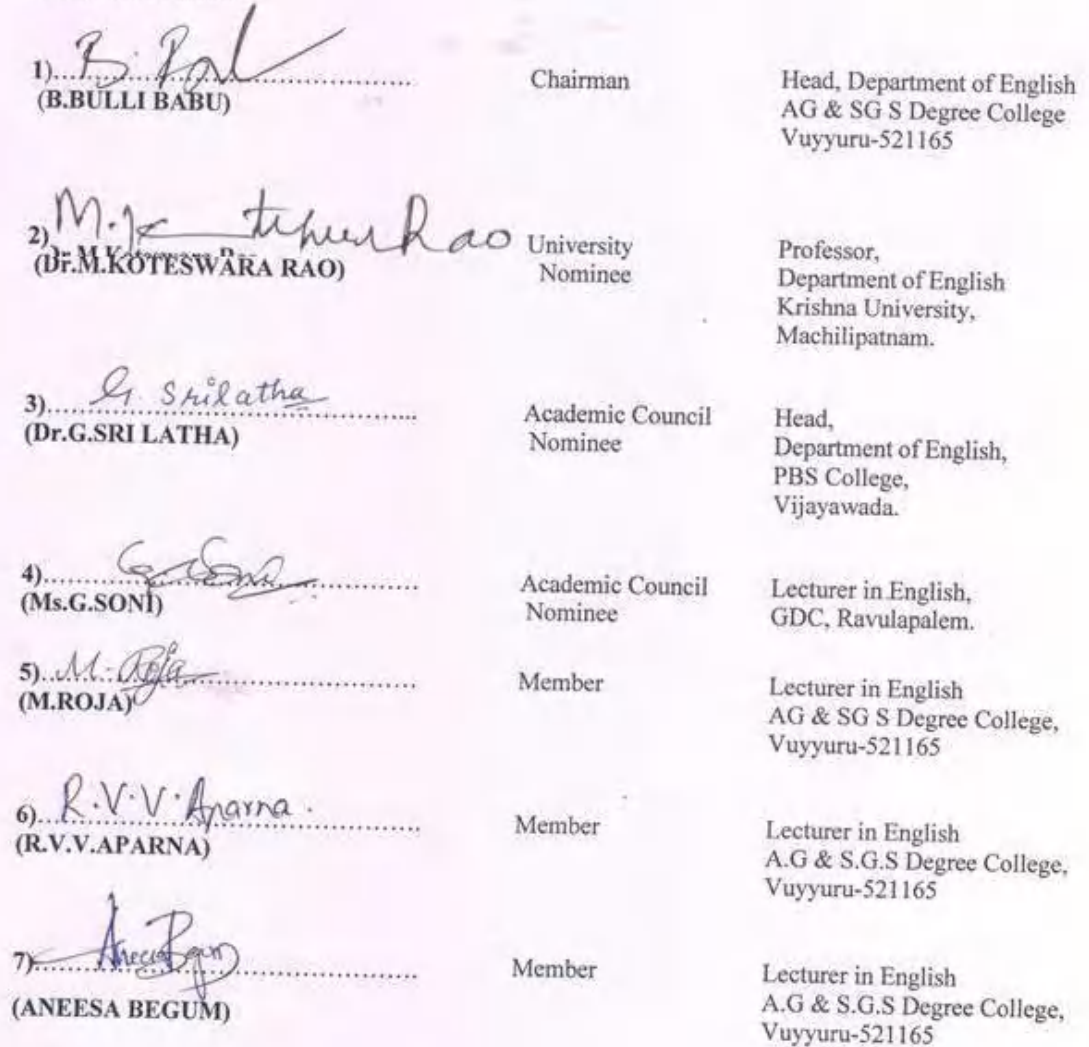 1) B. 
(B.BULLI BABU)
Chairman
Head, Department of English
AG & SG S Degree College
Vuyyuru-521165
2) M. Rao
(Dr.M.KOTESWARA RAO)
University
Nominee
Professor,
Department of English
Krishna University,
Machilipatnam.
3) G. Srilatha
(Dr.G.SRI LATHA)
Academic Council
Nominee
Head,
Department of English,
PBS College,
Vijayawada.
4) G. Soni
(Ms.G.SONI)
Academic Council
Nominee
Lecturer in English,
GDC, Ravulapalem.
5) M. Roja
(M.ROJA)
Member
Lecturer in English
AG & SG S Degree College,
Vuyyuru-521165
6) R.V.V. Aparna.
(R.V.V.APARNA)
Member
Lecturer in English
A.G & S.G.S Degree College,
Vuyyuru-521165
7) Aneesa Begum
(ANEESA BEGUM)
Member
Lecturer in English
A.G & S.G.S Degree College,
Vuyyuru-521165